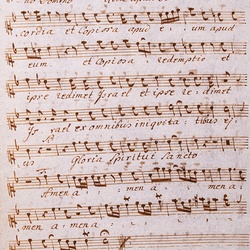 no Domino
cordia et Copiosa apud e : um apud
eum. et Copiosa Redemptio et
ipse redimet Israel et ipse re : dimet
Is : rael ex omnibus iniquita : tibus e :
ius Gloria Spiritui Sancto
Amen a : : men a :
men a men a :